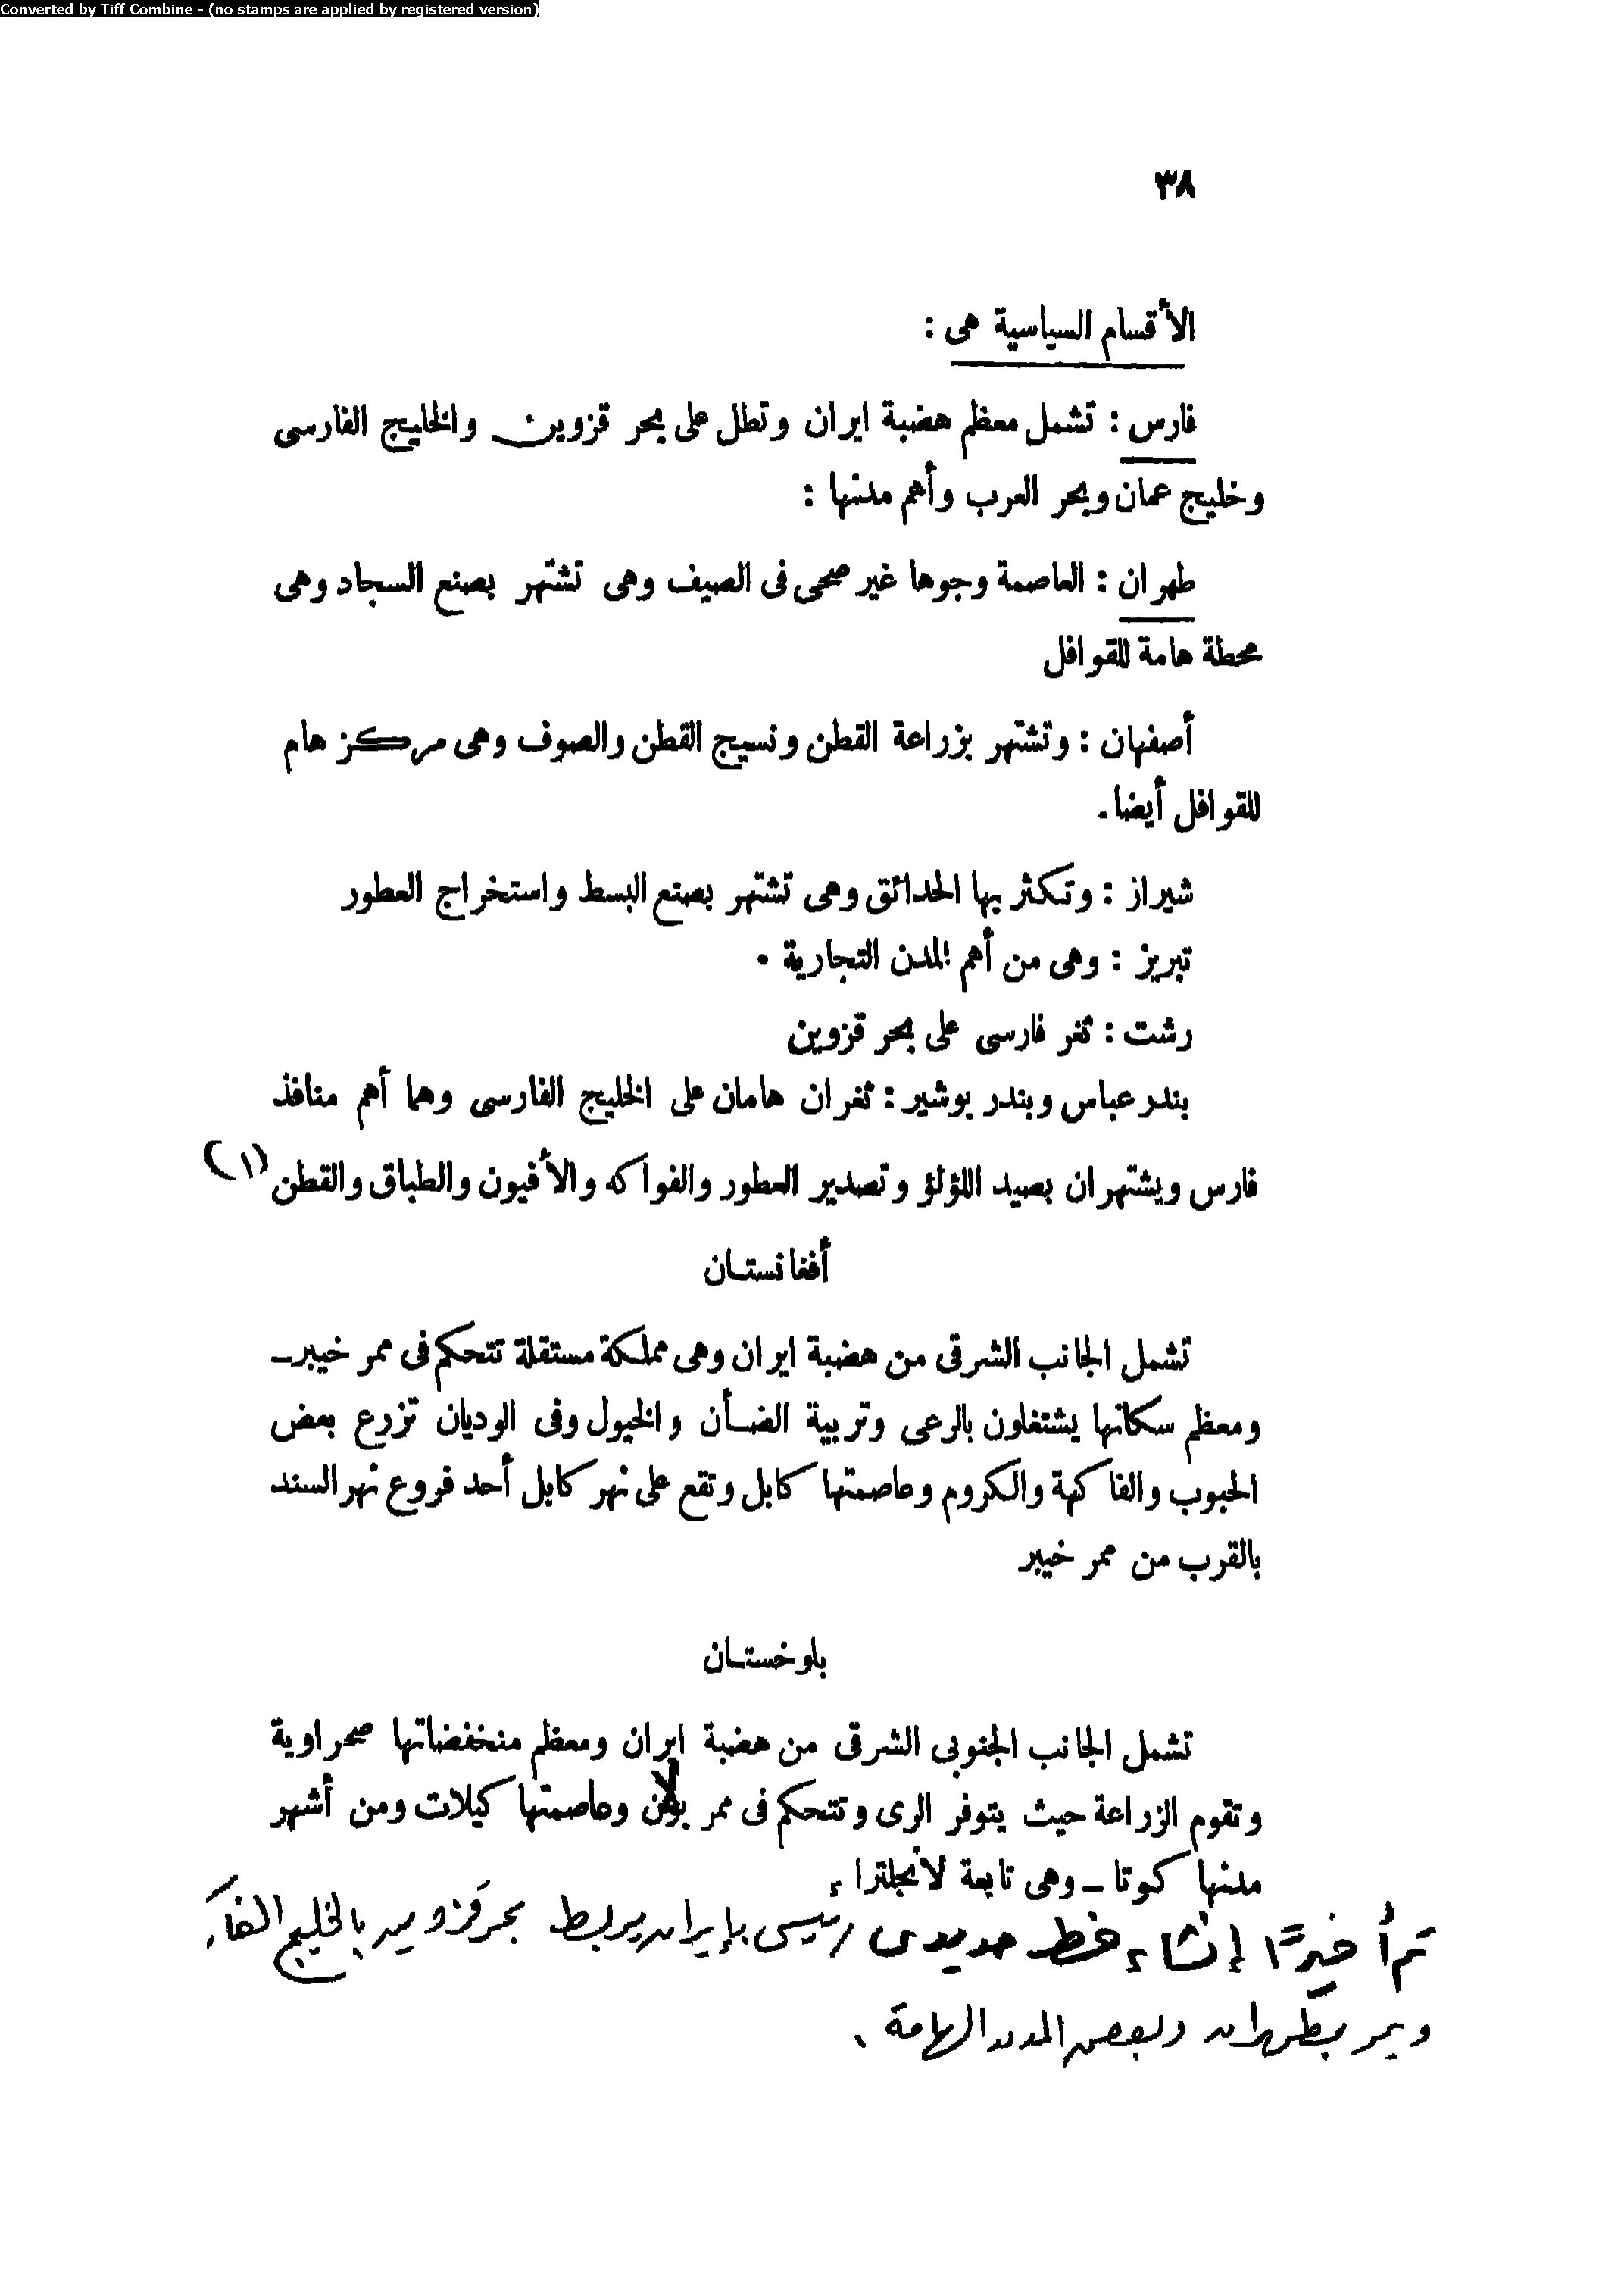 Converted by Tiff Combine - (no stamps are applied by registered version)
٣٨
الأقسام السياسية هى :
فارس : تشمل معظم هضبة ايران وتطل على بحر قزوين والخليج الفارسى
وخليج عمان وبحر العرب وأهم مدنها :
طهران : العاصمة وجوها غير صحى فى الصيف وهى تشتهر بصنع السجاد وهى
محطة هامة للقوافل
أصفهان : وتشتهر بزراعة القطن ونسيج القطن والصوف وهى مركز هام
للقوافل أيضا .
شيراز : وتكثر بها الحدائق وهى تشتهر بصنع البسط واستخراج العطور
تبريز : وهى من أهم المدن التجارية .
رشت : ثغر فارسى على بحر قزوين
بندر عباس وبندر بوشير : ثغران هامان على الخليج الفارسى وهما أهم منافذ
فارس ويشتهران بصيد اللؤلؤ وتصدير العطور والفواكه والأفيون والطباق والقطن (١)
أفغانستان
تشمل الجانب الشرقى من هضبة ايران وهى مملكة مستقلة تتحكم فى ممر خيبر ـ
ومعظم سكانها يشتغلون بالرعى وتربية الضأن والخيول وفى الوديان تزرع بعض
الحبوب والفاكهة والكروم وعاصمتها كابل وتقع على نهر كابل أحد فروع نهر السند
بالقرب من ممر خيبر
بلوخستان
تشمل الجانب الجنوبى الشرقى من هضبة ايران ومعظم منخفضاتها صحراوية
وتقوم الزراعة حيث يتوفر الرى وتتحكم فى ممر بولان وعاصمتها كيلات ومن أشهر
مدنها كوتا ـ وهى تابعة لانجلترا .
تم أخيرًا إنشاء خط حديدى رئيسى بإيران يربط بحر قزوين بالخليج
ويمر بطهران وبعض المدن الهامة .